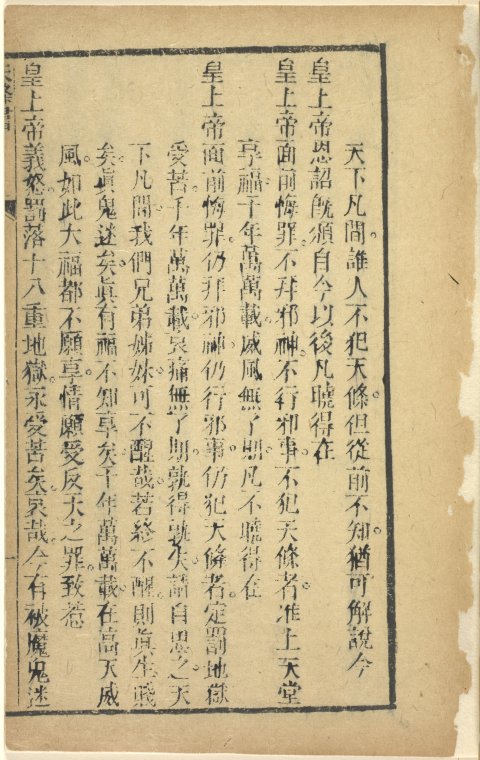 天下凡間誰人不犯天條但從前不知猶可解說今
皇上帝恩詔既頒自今以後凡曉得在
皇上帝面前悔罪不拜邪神不行邪事不犯天條者准上天堂
享福千年萬萬載威風無了期凡不曉得在
皇上帝面前悔罪仍拜邪神仍行邪事仍犯天條者定罰地獄
受苦千年萬萬載哀痛無了期孰得孰失請自思之天
下凡間我們兄弟姊妹可不醒哉若終不醒則眞生賤
矣眞鬼迷矣眞有福不知享矣千年萬萬載在高天威
風如此大福都不願享情願受反天之罪致惹
皇上帝義怒罰落十八重地獄永受苦矣哀哉今有被魔鬼迷
天條書